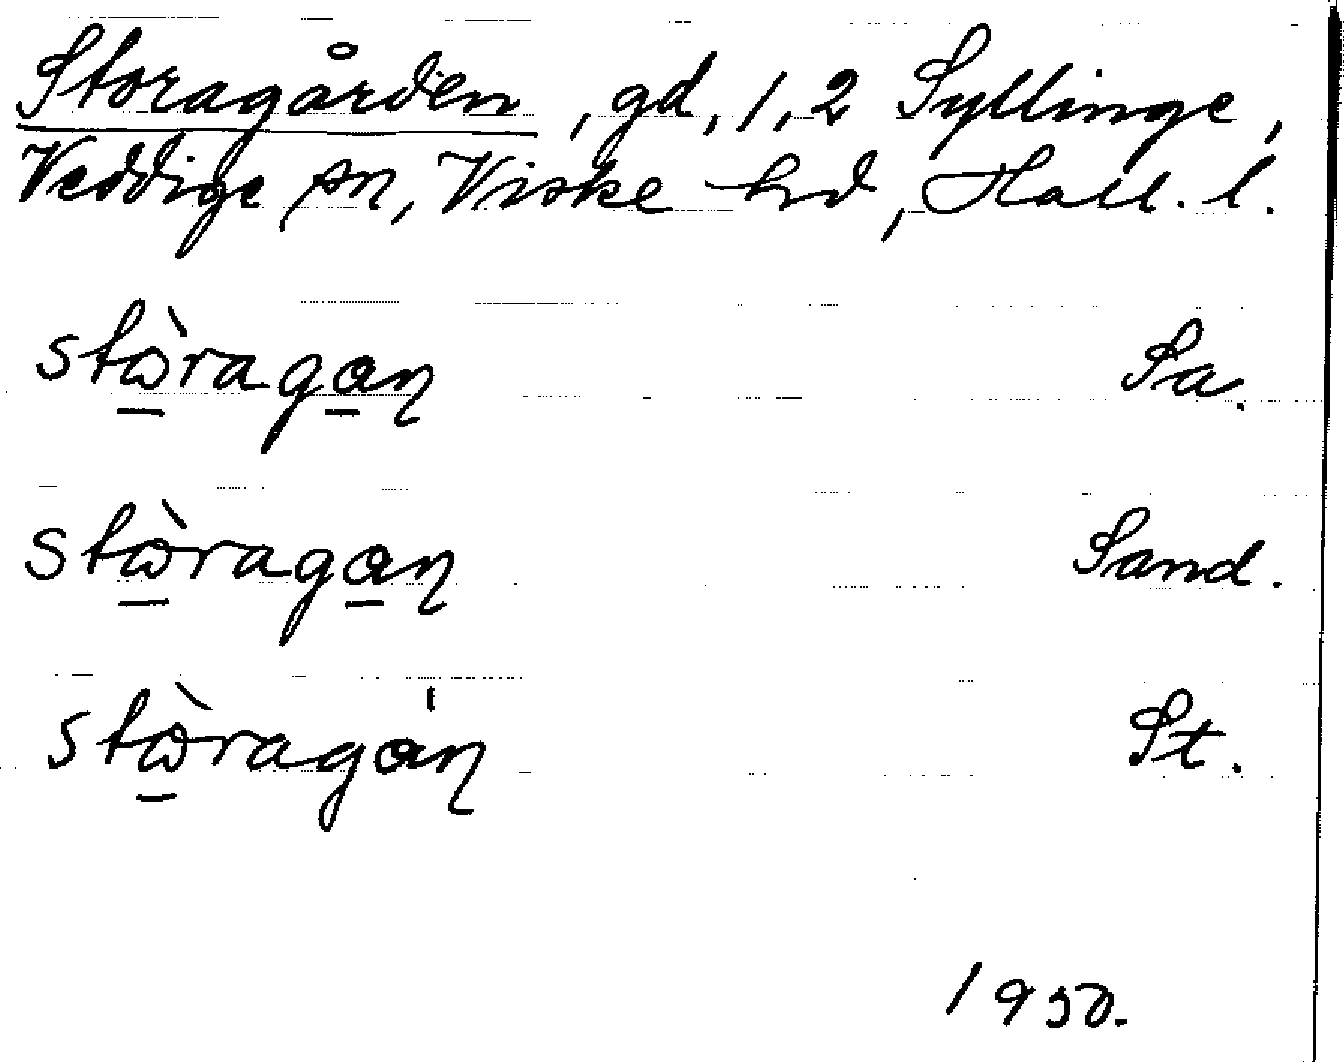 Storagården, gd, 1, 2 Syllinge,
Veddige sn, Viske hd, Hall. l.
stὼ̲raga̲ɳ Sa.
stὼ̲raga̲ɳ Sand.
stὼ̲ragáɳ St.
1950.